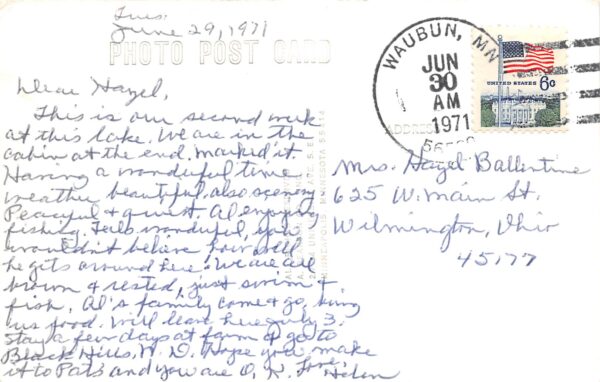 Tues.
June 29, 1971
PHOTO POST CARD
Dear Hazel,
This is our second week
at this lake. We are in the
cabin at the end. Marked it.
Having a wonderful time
weather beautiful, also scenery
Peaceful & quiet. Al enjoying
fishing. Feels wonderful, you
wouldn't believe how well
he gets around here. We are all
brown & rested, just swim &
fish. Al's family come & go, bring
us food. Will leave here July 3.
stay a few days at farm & go to
Black Hills, N. D. Hope you make
it to Pats and you are O.K. Love,
Helen
WAUBUN, MN
JUN
30
AM
1971
UNITED STATES 6c
Mrs. Hazel Ballentine
625 W. Main St.
Wilmington, Ohio
45177